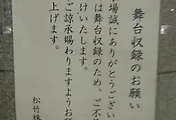 舞台収録のお願い
場誠にありがとうござい
は舞台収録のため、ご不
けいたします。
ご諒承賜わりますようお
上げます。
松竹株